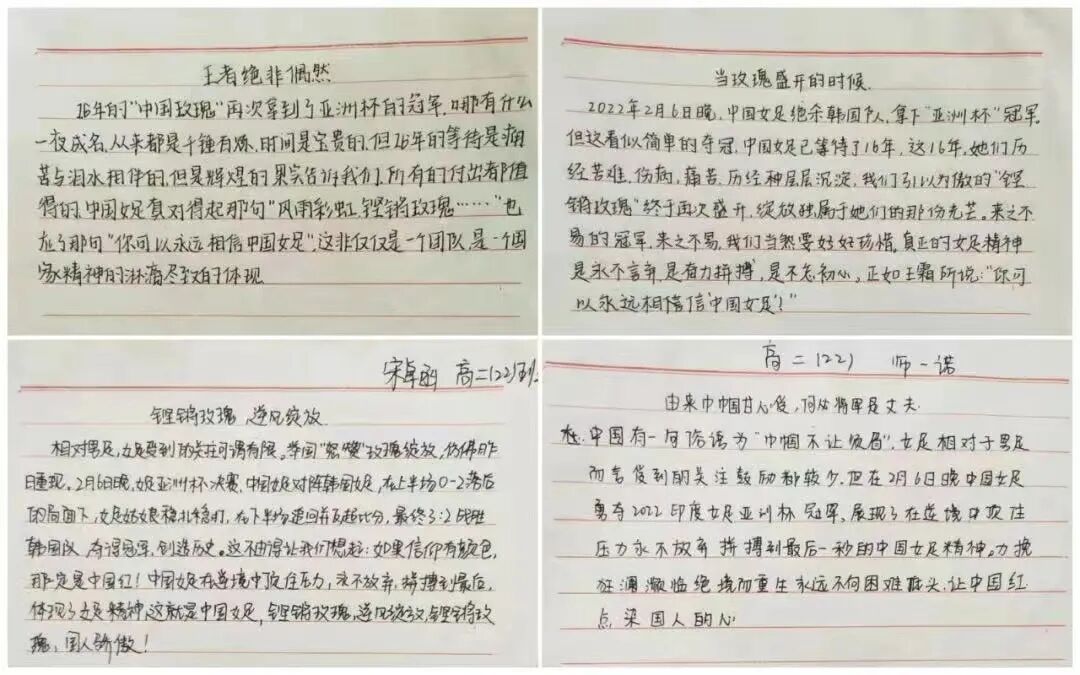 王者绝非偶然
16年的"中国玫瑰"再次拿到了亚洲杯的冠军.哪有什么
一夜成名,从来都是千锤百炼.时间是宝贵的,但16年的等待是痛
苦与泪水相伴的,但是辉煌的果实告诉我们,所有的付出都值
得的.中国女足真对得起那句"风雨彩虹,铿锵玫瑰……"也
应了那句"你可以永远相信中国女足"这非仅仅是一个团队,是一个国
家精神的淋漓尽致的体现
当玫瑰盛开的时候.
2022年2月6日晚,中国女足绝杀韩国队,拿下"亚洲杯"冠军.
但这看似简单的夺冠,中国女足已等待了16年,这16年,她们历
经苦难,伤病,痛苦.历经种层层沉淀,我们引以为傲的"铿
锵玫瑰"终于再次盛开,绽放独属于她们的那份光芒.来之不
易的冠军,来之不易,我们当然要好好珍惜,真正的女足精神
是永不言弃,是奋力拼搏,是不忘初心。正如王霜所说:"你可
以永远相信中国女足!"
宋卓函 高二(22)班.
铿锵玫瑰 逆风绽放.
相对男足,女足受到的关注可谓有限。举国"怒赞"玫瑰绽放,仿佛昨
日重现。2月6日晚,女足亚洲杯决赛,中国女足对阵韩国女足,在上半场0-2落后
的局面下,女足姑娘稳扎稳打,在下半场追回并反超比分,最终3:2战胜
韩国队,夺得冠军,创造历史。这不由得让我们想起:如果信仰有颜色,
那一定是中国红!中国女足在逆境中顶住压力,永不放弃,拼搏到最后,
体现了女足精神,这就是中国女足,铿锵玫瑰,逆风绽放,铿锵玫
瑰,国人骄傲!
高二(22) 师一诺
由来巾帼甘心俊,何必将军是丈夫.
在.中国有一句俗语为"巾帼不让须眉".女足相对于男足
而言受到的关注鼓励都较少.但在2月6日晚中国女足
勇夺2022印度女足亚洲杯冠军、展现了在逆境中顶住
压力永不放弃 拼搏到最后一秒的中国女足精神。力挽
狂澜濒临绝境而重生永远不向困难低头.让中国红
点染国人的心